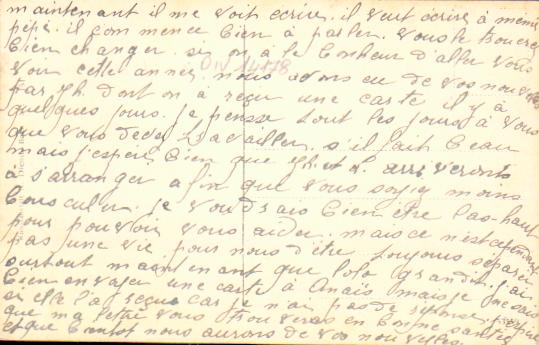 maintenant il me voit écrire. il veut écrire à mémé
pépé. il commence bien à parler. vous le trouverez
bien changer. si on a le bonheur d'aller vous
voir cette année. nous avons eu de vos nouvelles
par Jh. dont on a reçu une carte il y a
quelques jours. je pensse tout les jours à vous
que vous devez travailler. s'il fait beau
mais j'espère bien que Jh. et L. arriveront
à s'arranger afin que vous soyez moins
bousculer. je voudrais bien être las-haut
pour pouvoir vous aider. mais ce n'est cependant
pas une vie pour nous d'être toujours séparer
surtout maintenant que Lolo grandir. j'ai
bien envoyer une carte à Anaïs mais je ne sais
si elle l'a reçue car je n'ai pas de réponse. j'espère
que ma lettre vous trouveras en bonne santée
et que bientot nous aurons de vos nouvelles.